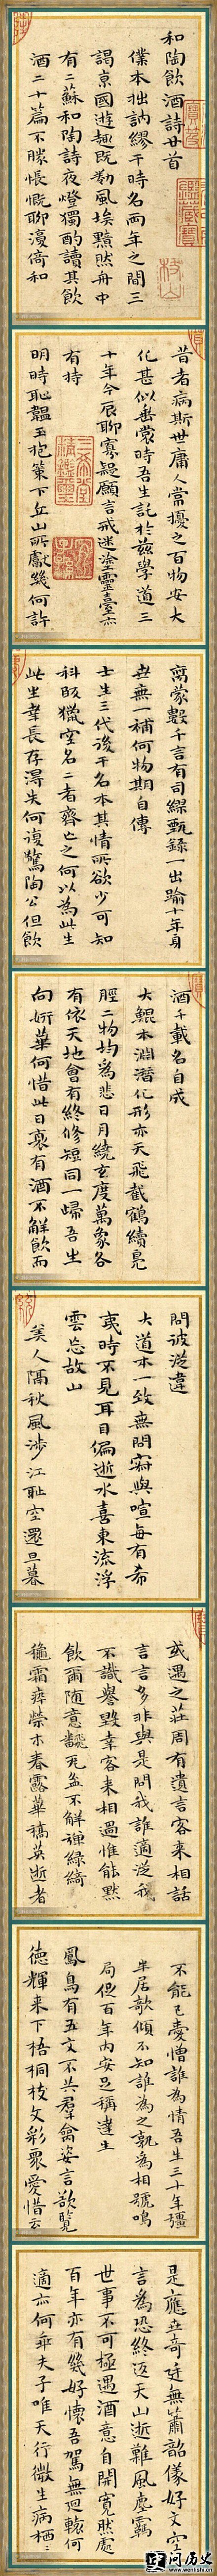 和陶飲酒詩廿首
僕本拙訥繆干時名兩年之間三
謁京國遊趣既勌風埃黯然舟中
有二蘇和陶詩夜燈獨酌讀其飲
酒二十篇不勝悵慨聊濡倚和
昔者病斯世庸人常擾之百物安大
化甚似垂裳時吾生託於茲學道三
十年今辰聊寡疑願言戒迷塗靈臺亦
有持
明時恥韞玉抱策下丘山所獻幾何許
寓蒙數千言有司繆甄錄一出踰十年身
世無一補何物期自傳
士生三代後干名本其情所欲少可知
科臤獵室名二者齊亡之何以為此生
此生幸長存得失何復驚陶公但飲
酒千載名自成
大鯤本淵潛化形亦天飛截鶴續鳧
脛二物均為悲日月繞玄度萬象各
有依天地會有終修短同一歸吾生
向妍華何惜此日衰有酒不解飲而
問彼從違
大道本一致無問寂與喧每有希
夷時不見耳目偏逝水喜東流浮
雲忘故山
美人隔秋風涉江恥空還旦暮
或遇之莊周有遺言客來相話
言言多非與是問我誰適從我
不識譽毀幸客來相過惟能默
飲爾隨意飜瓦盆不解彈綠綺
穐霜瘁榮木春露華槁英逝者
不能已憂憎誰為情吾生三十年彊
半居欹傾不知誰為之孰為相號鳴
局促百年內安足稱達生
鳳鳥有五文不共羣禽姿言欲覽
德輝來下梧桐枝文彩眾愛惜云
是應世奇廷無簫韶儀好文空
言為恐終返天山逝難風塵羈
世事不可極遇酒意自開寬然處
百年亦有幾好懷吾駕無迴轅何
適亦何乖夫子唯天行微生病栖二
问历史
www.wenlishi.cn